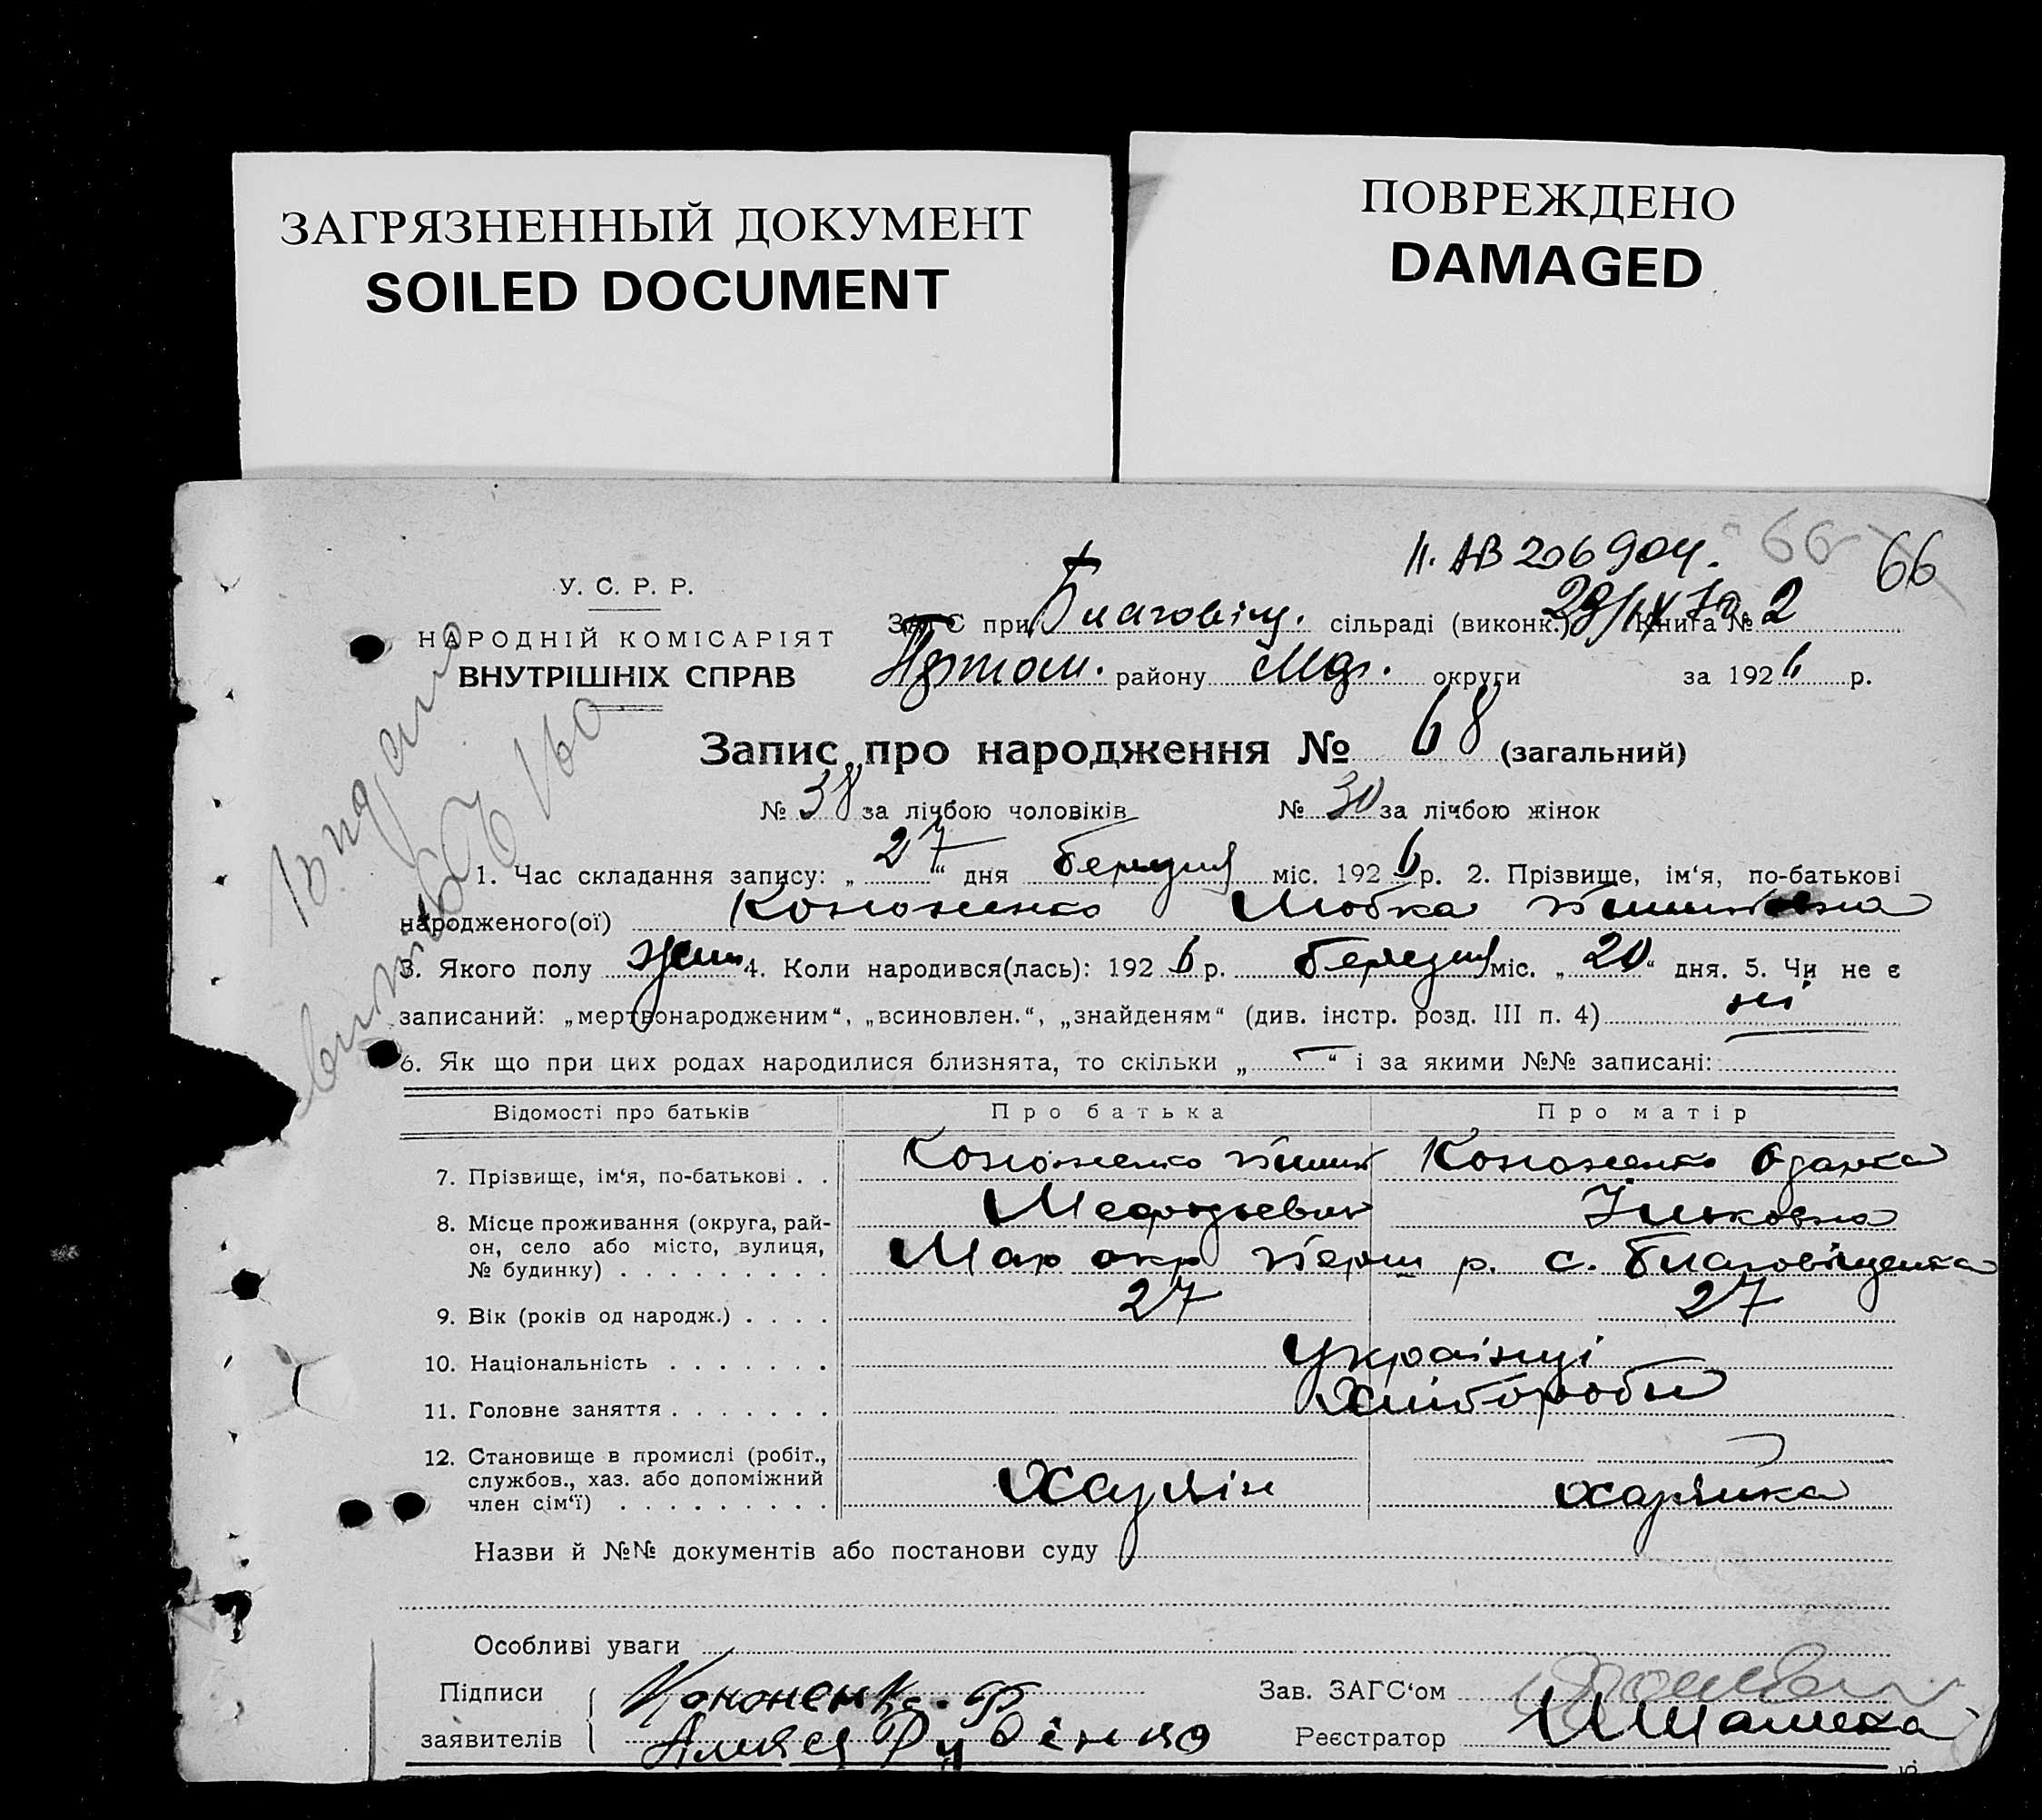 ЗАГРЯЗНЕННЫЙ ДОКУМЕНТ
SOILED DOCUMENT
ПОВРЕЖДЕНО
DAMAGED
Н. АВ 206904. 66 66
У. С. Р. Р.
НАРОДНІЙ КОМІСАРІЯТ
ВНУТРІШНІХ СПРАВ
ЗАГС при Благовіщ. сільраді (виконк.) Книга № 2
району Мар. округи за 1926 р.
Запис про народження № 68 (загальний)
№ 38 за лічбою чоловіків № 30 за лічбою жінок
1. Час складання запису: „27“ дня березня міс. 1926 р. 2. Прізвище, ім‘я, по-батькові
народженого(ої) Кононенко Любка
3. Якого полу жин 4. Коли народився(лась): 1926 р. березня міс. „20“ дня. 5. Чи не є
записаний: „мертвонародженим“, „всиновлен.“, „знайденям“ (див. інстр. розд. III п. 4) ні
6. Як що при цих родах народилися близнята, то скільки „—“ і за якими №№ записані:
Відомості про батьків Про батька Про матір
7. Прізвище, ім‘я, по-батькові . . Кононенко Кононенко Одарка
Мефодьевич Ільковна
8. Місце проживання (округа, рай-
он, село або місто, вулиця,
№ будинку) . . . . . . . . . Мар окр р. с. Благовіщенка
9. Вік (років од народж.) . . . . 27 27
10. Національність . . . . . . . Українці
11. Головне заняття . . . . . . . Хлібороби
12. Становище в промислі (робіт.,
службов., хаз. або допоміжний
член сім‘ї) . . . . . . . . . Хазяїн хазяйка
Назви й №№ документів або постанови суду
Особливі уваги
Підписи
заявителів
Кононенко
Зав. ЗАГС‘ом
Реєстратор